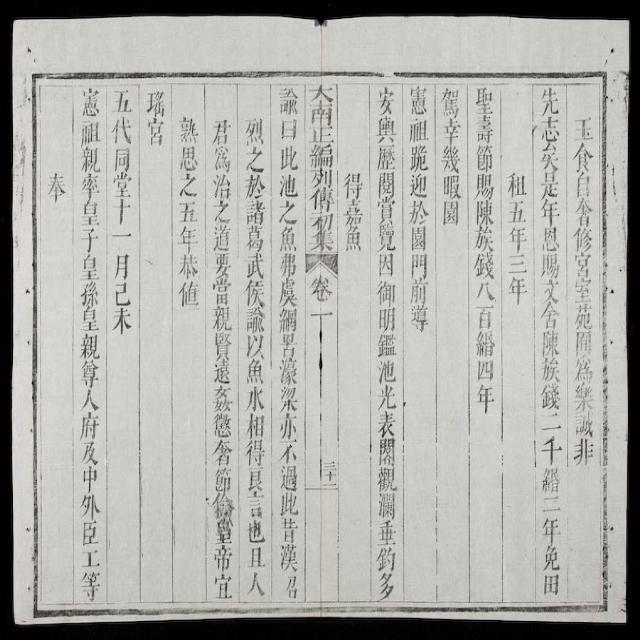 玉食自奢修宮室苑囿爲樂誠非
先志矣是年恩賜文舍陳族錢二千緡二年免田
租五年三年
聖壽節賜陳族錢八百緡四年
駕幸幾暇園
憲祖跪迎於園門前導
安輿歷閱賞覽因御明鑑池光表閣觀瀾垂釣多
得嘉魚
大南正編列傳初集 卷一 三十二
諭曰此池之魚弗虞網罟濠梁亦不過此昔漢昭
烈之於諸葛武侯諭以魚水相得良言也且人
君爲治之道要當親賢遠姦懲奢節儉皇帝宜
熟思之五年恭值
瑤宮
五代同堂十一月己未
憲祖親率皇子皇孫皇親尊人府及中外臣工等
奉